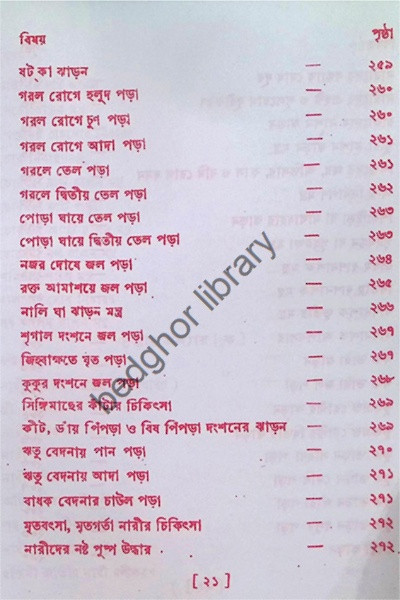 বিষয় পৃষ্ঠা
ষট কা ঝাড়ন — ২৫৯
গরল রোগে হলুদ পড়া — ২৬০
গরল রোগে চুণ পড়া — ২৬০
গরল রোগে আদা পড়া — ২৬১
গরলে তেল পড়া — ২৬১
গরলে দ্বিতীয় তেল পড়া — ২৬২
পোড়া ঘায়ে তেল পড়া — ২৬৩
পোড়া ঘায়ে দ্বিতীয় তেল পড়া — ২৬৩
নজর দোষে জল পড়া — ২৬৪
রক্ত আমাশয়ে জল পড়া — ২৬৫
নালি ঘা ঝাড়ন মন্ত্র — ২৬৬
শৃগাল দংশনে জল পড়া — ২৬৭
জিহ্বাক্ষতে ঘৃত পড়া — ২৬৭
কুকুর দংশনে জল পড়া — ২৬৮
সিঙ্গিমাছের কাঁটার চিকিৎসা — ২৬৯
কীট, ডায় পিঁপড়া ও বিষ পিঁপড়া দংশনের ঝাড়ন — ২৬৯
ঋতু বেদনায় পান পড়া — ২৭০
ঋতু বেদনায় আদা পড়া — ২৭১
বাধক বেদনার চাউল পড়া — ২৭১
মৃতবৎসা, মৃতগর্তা নারীর চিকিৎসা — ২৭২
নারীদের নষ্ট পুষ্প উদ্ধার — ২৭২
[ ২১ ]
hedghor library